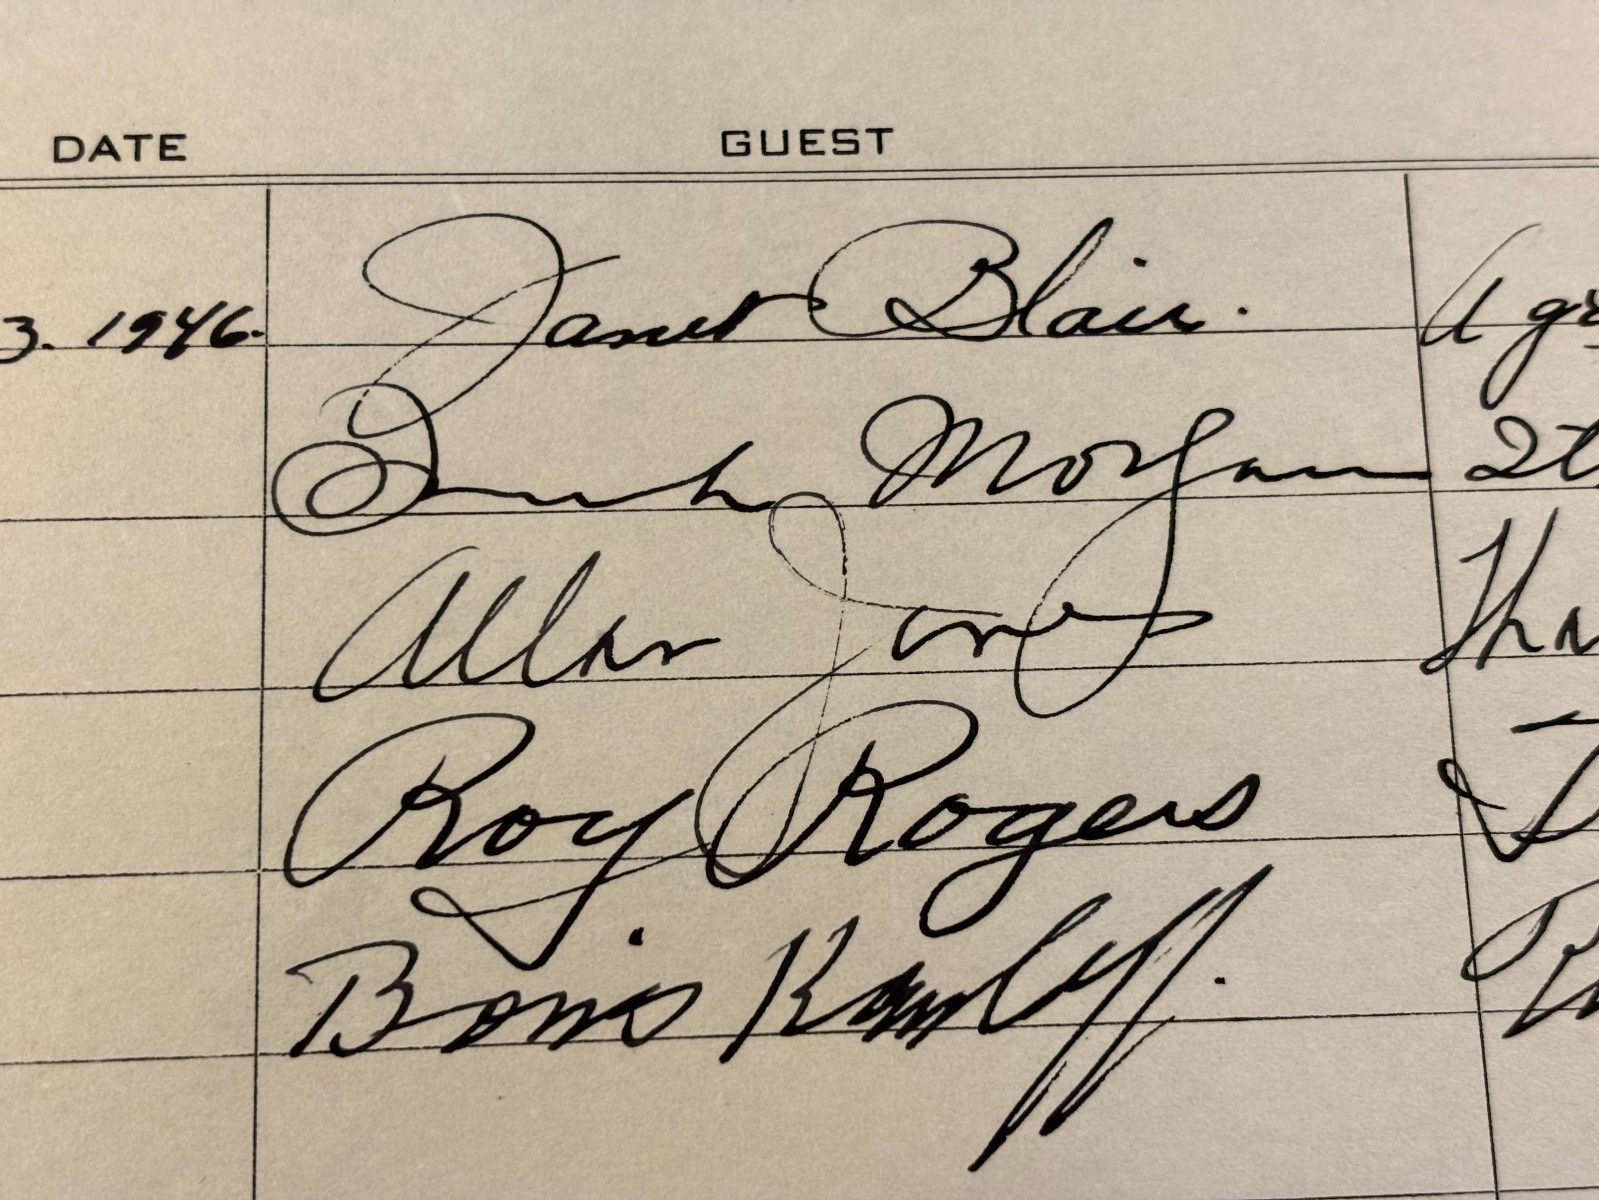 DATE GUEST
3. 1946. Janet Blair.
Frank Morgan
Allan Jones
Roy Rogers
Boris Karloff.